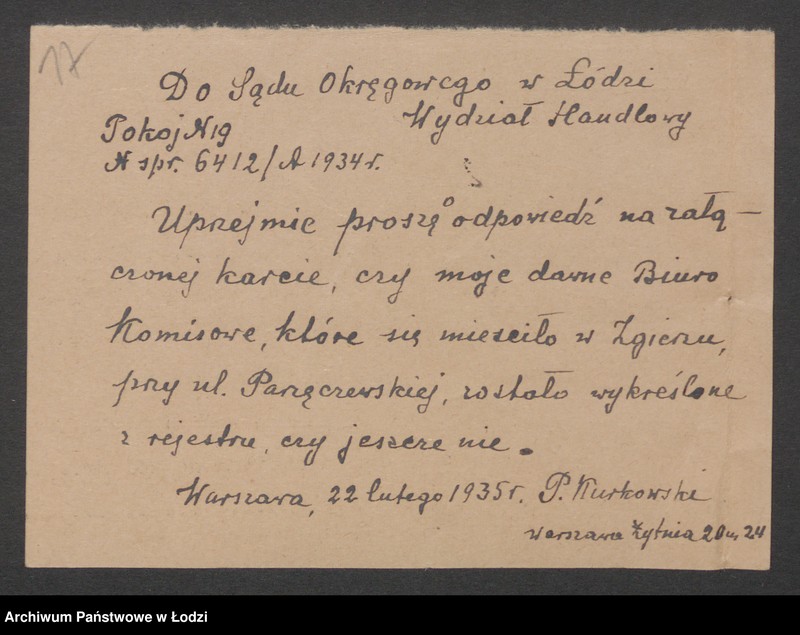 17
Do Sądu Okręgowego w Łódzi
Wydział Handlowy
Pokoj N 19
N spr. 6412/A 1934 r.
Uprzejmie proszę o odpowiedź na załą—
czonej karcie, czy moje dawne Biuro
Komisowe, które się mieściło w Zgierzu,
przy ul. Parzęczewskiej, zostało wykreślone
z rejestru, czy jeszcze nie.
Warszawa, 22 lutego 1935 r. P. Kurkowski
Warszawa Żytnia 20 m 24
Archiwum Państwowe w Łodzi